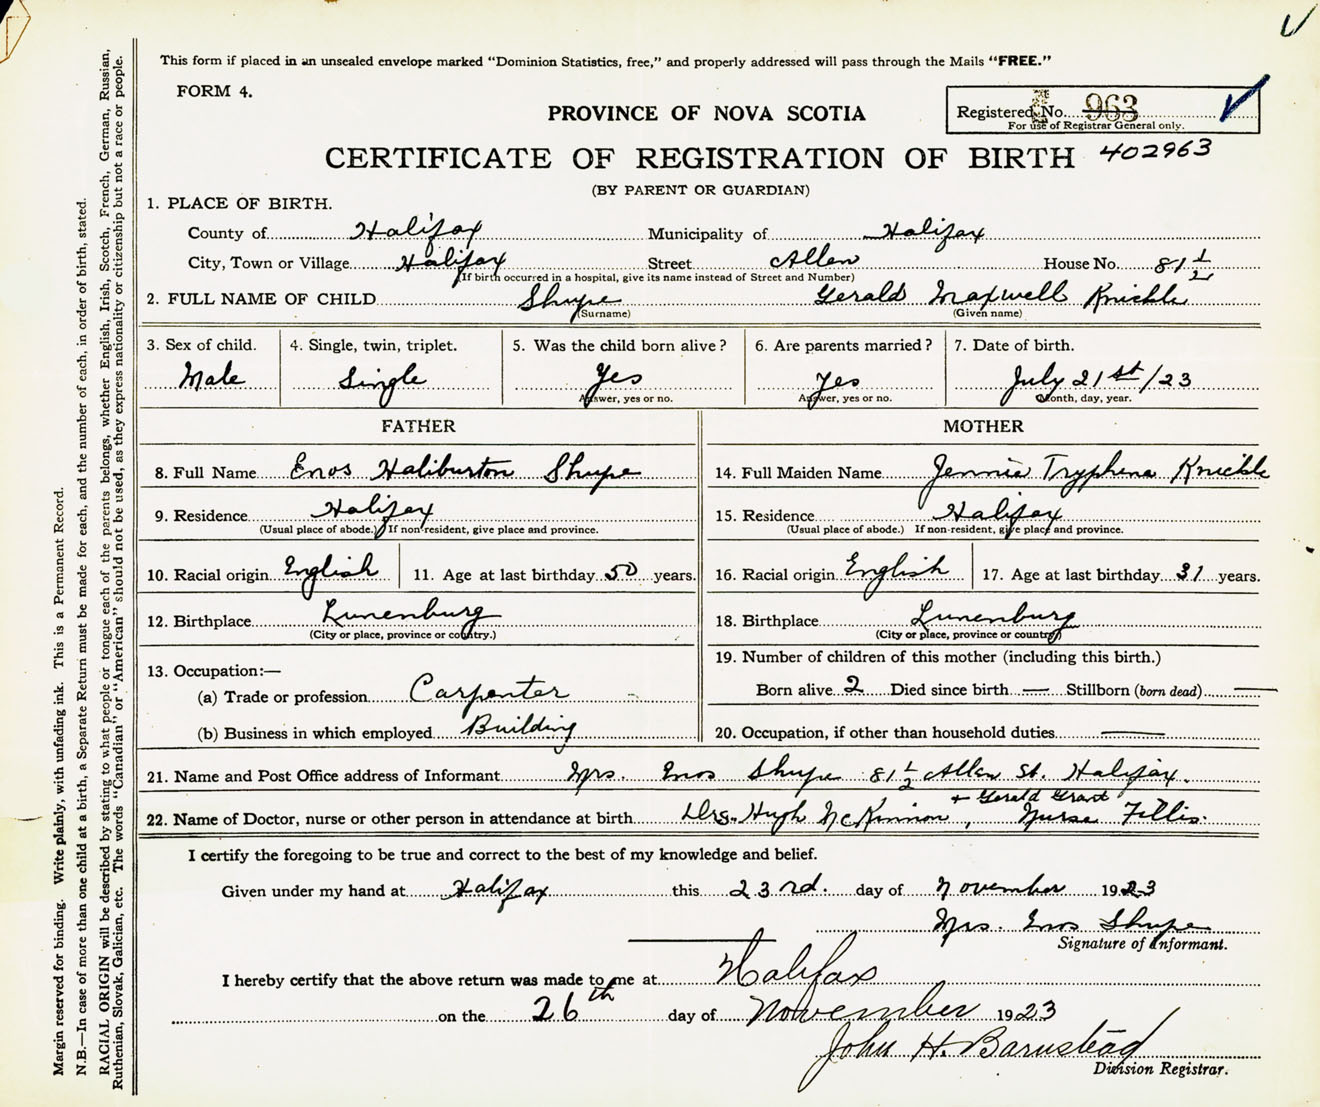 This form if placed in an unsealed envelope marked "Dominion Statistics, free," and properly addressed will pass through the Mails "FREE."
FORM 4.
PROVINCE OF NOVA SCOTIA
Registered No. 963
For use of Registrar General only.
CERTIFICATE OF REGISTRATION OF BIRTH 402963
(BY PARENT OR GUARDIAN)
1. PLACE OF BIRTH.
County of Halifax Municipality of Halifax
City, Town or Village Halifax Street Allen House No. 81 1/2
(If birth occurred in a hospital, give its name instead of Street and Number)
2. FULL NAME OF CHILD Shupe Gerald Maxwell Knickle
(Surname) (Given name)
3. Sex of child. 4. Single, twin, triplet. 5. Was the child born alive? 6. Are parents married? 7. Date of birth.
Male Single Yes Yes July 21st/23
Answer, yes or no. Answer, yes or no. Month, day, year.
FATHER MOTHER
8. Full Name Enos Haliburton Shupe 14. Full Maiden Name Jennie Tryphena Knickle
9. Residence Halifax 15. Residence Halifax
(Usual place of abode.) If non-resident, give place and province. (Usual place of abode.) If non-resident, give place and province.
10. Racial origin English 11. Age at last birthday 50 years. 16. Racial origin English 17. Age at last birthday 31 years.
12. Birthplace Lunenburg 18. Birthplace Lunenburg
(City or place, province or country.) (City or place, province or country)
13. Occupation:— 19. Number of children of this mother (including this birth.)
(a) Trade or profession Carpenter Born alive 2 Died since birth — Stillborn (born dead) —
(b) Business in which employed Building 20. Occupation, if other than household duties —
21. Name and Post Office address of Informant Mrs. Enos Shupe 81 1/2 Allen St. Halifax.
+ Gerald Grant
22. Name of Doctor, nurse or other person in attendance at birth Drs. Hugh McKinnon, Nurse Fillis.
I certify the foregoing to be true and correct to the best of my knowledge and belief.
Given under my hand at Halifax this 23rd. day of November 1923
Mrs. Enos Shupe
Signature of Informant.
I hereby certify that the above return was made to me at Halifax
on the 26th day of November 1923
John H. Barnstead
Division Registrar.
Margin reserved for binding. Write plainly, with unfading ink. This is a Permanent Record.
N.B.—In case of more than one child at a birth, a Separate Return must be made for each, and the number of each, in order of birth, stated.
RACIAL ORIGIN will be described by stating to what people or tongue each of the parents belongs, whether English, Irish, Scotch, French, German, Russian,
Ruthenian, Slovak, Galician, etc. The words "Canadian" or "American" should not be used, as they express nationality or citizenship but not a race or people.